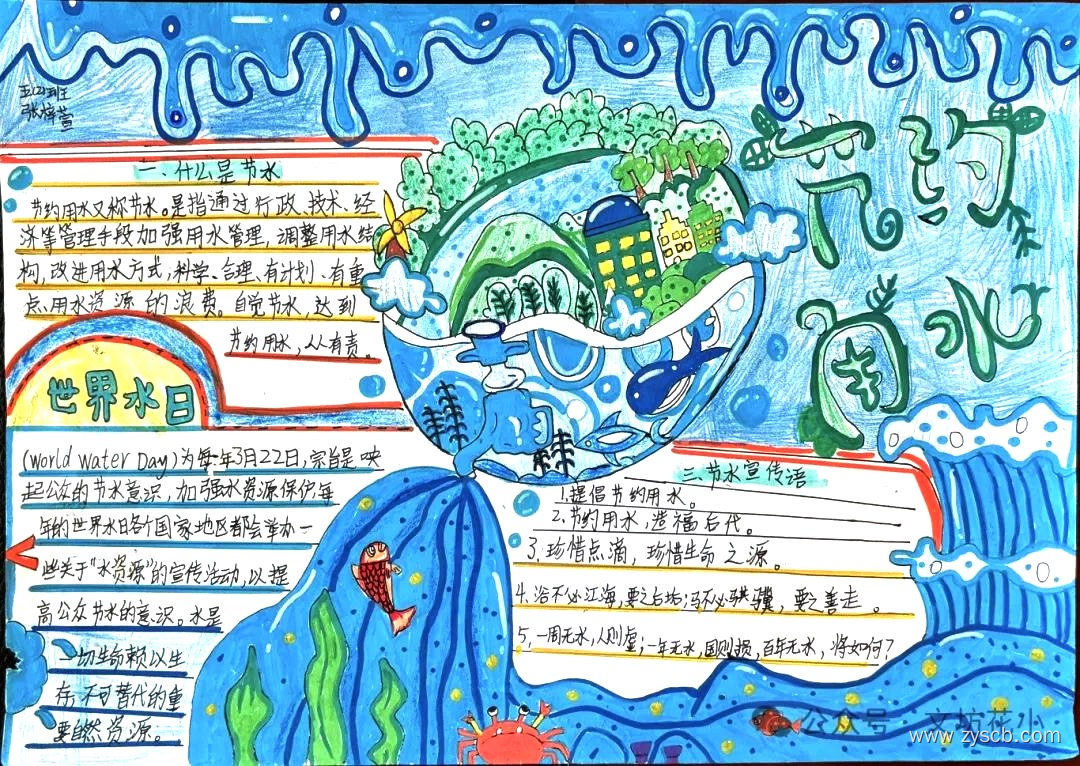 五(2)班
张梓萱
节约
用水
一、什么是节水
节约用水又称节水。是指通过行政、技术、经
济等管理手段加强用水管理,调整用水结
构,改进用水方式,科学、合理、有计划、有重
点、用水资源的浪费。自觉节水,达到
节约用水,人人有责。
世界水日
(World Water Day)为每年3月22日,宗旨是唤
起公众的节水意识,加强水资源保护每
年的世界水日各个国家地区都会举办一
些关于“水资源”的宣传活动,以提
高公众节水的意识。水是
一切生命赖以生
存,不可替代的重
要自然资源。
三、节水宣传语
1.提倡节约用水。
2.节约用水,造福后代。
3.珍惜点滴,珍惜生命之源。
4.浴不必江海,要之去垢;马不必骐骥,要之善走。
5.一周无水,人则虚;一年无水,国则损,百年无水,将如何?
公众号 文坊花小
www.zyscb.com